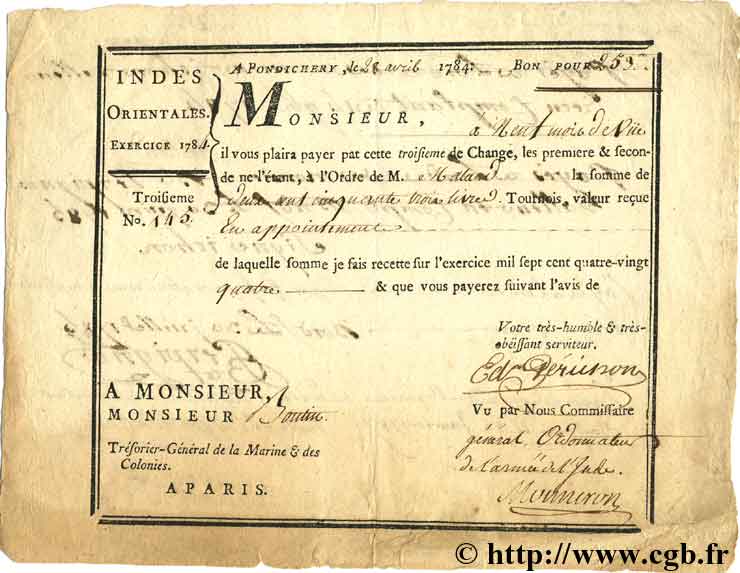 INDES
ORIENTALES.
EXERCICE 1784.
Troisieme
No. 145.
A PONDICHERY, le 28 avril 1784. BON POUR 253
MONSIEUR,
a Neuf mois de Vüe
il vous plaira payer pat cette troisieme de Change, les premiere & secon-
de ne l'étant, à l'Ordre de M. la somme de
deux cent cinquante trois livres Tournois, valeur reçue
En appointement
de laquelle somme je fais recette sur l'exercice mil sept cent quatre-vingt
quatre & que vous payerez suivant l'avis de
Votre très-humble & très-
obëissant serviteur.
A MONSIEUR,
MONSIEUR Boutin
Trésorier-Général de la Marine & des
Colonies.
A PARIS.
VU par Nous Commissaire
général Ordonnateur
de l'armée de l'Inde.
Monneron
© http://www.cgb.fr